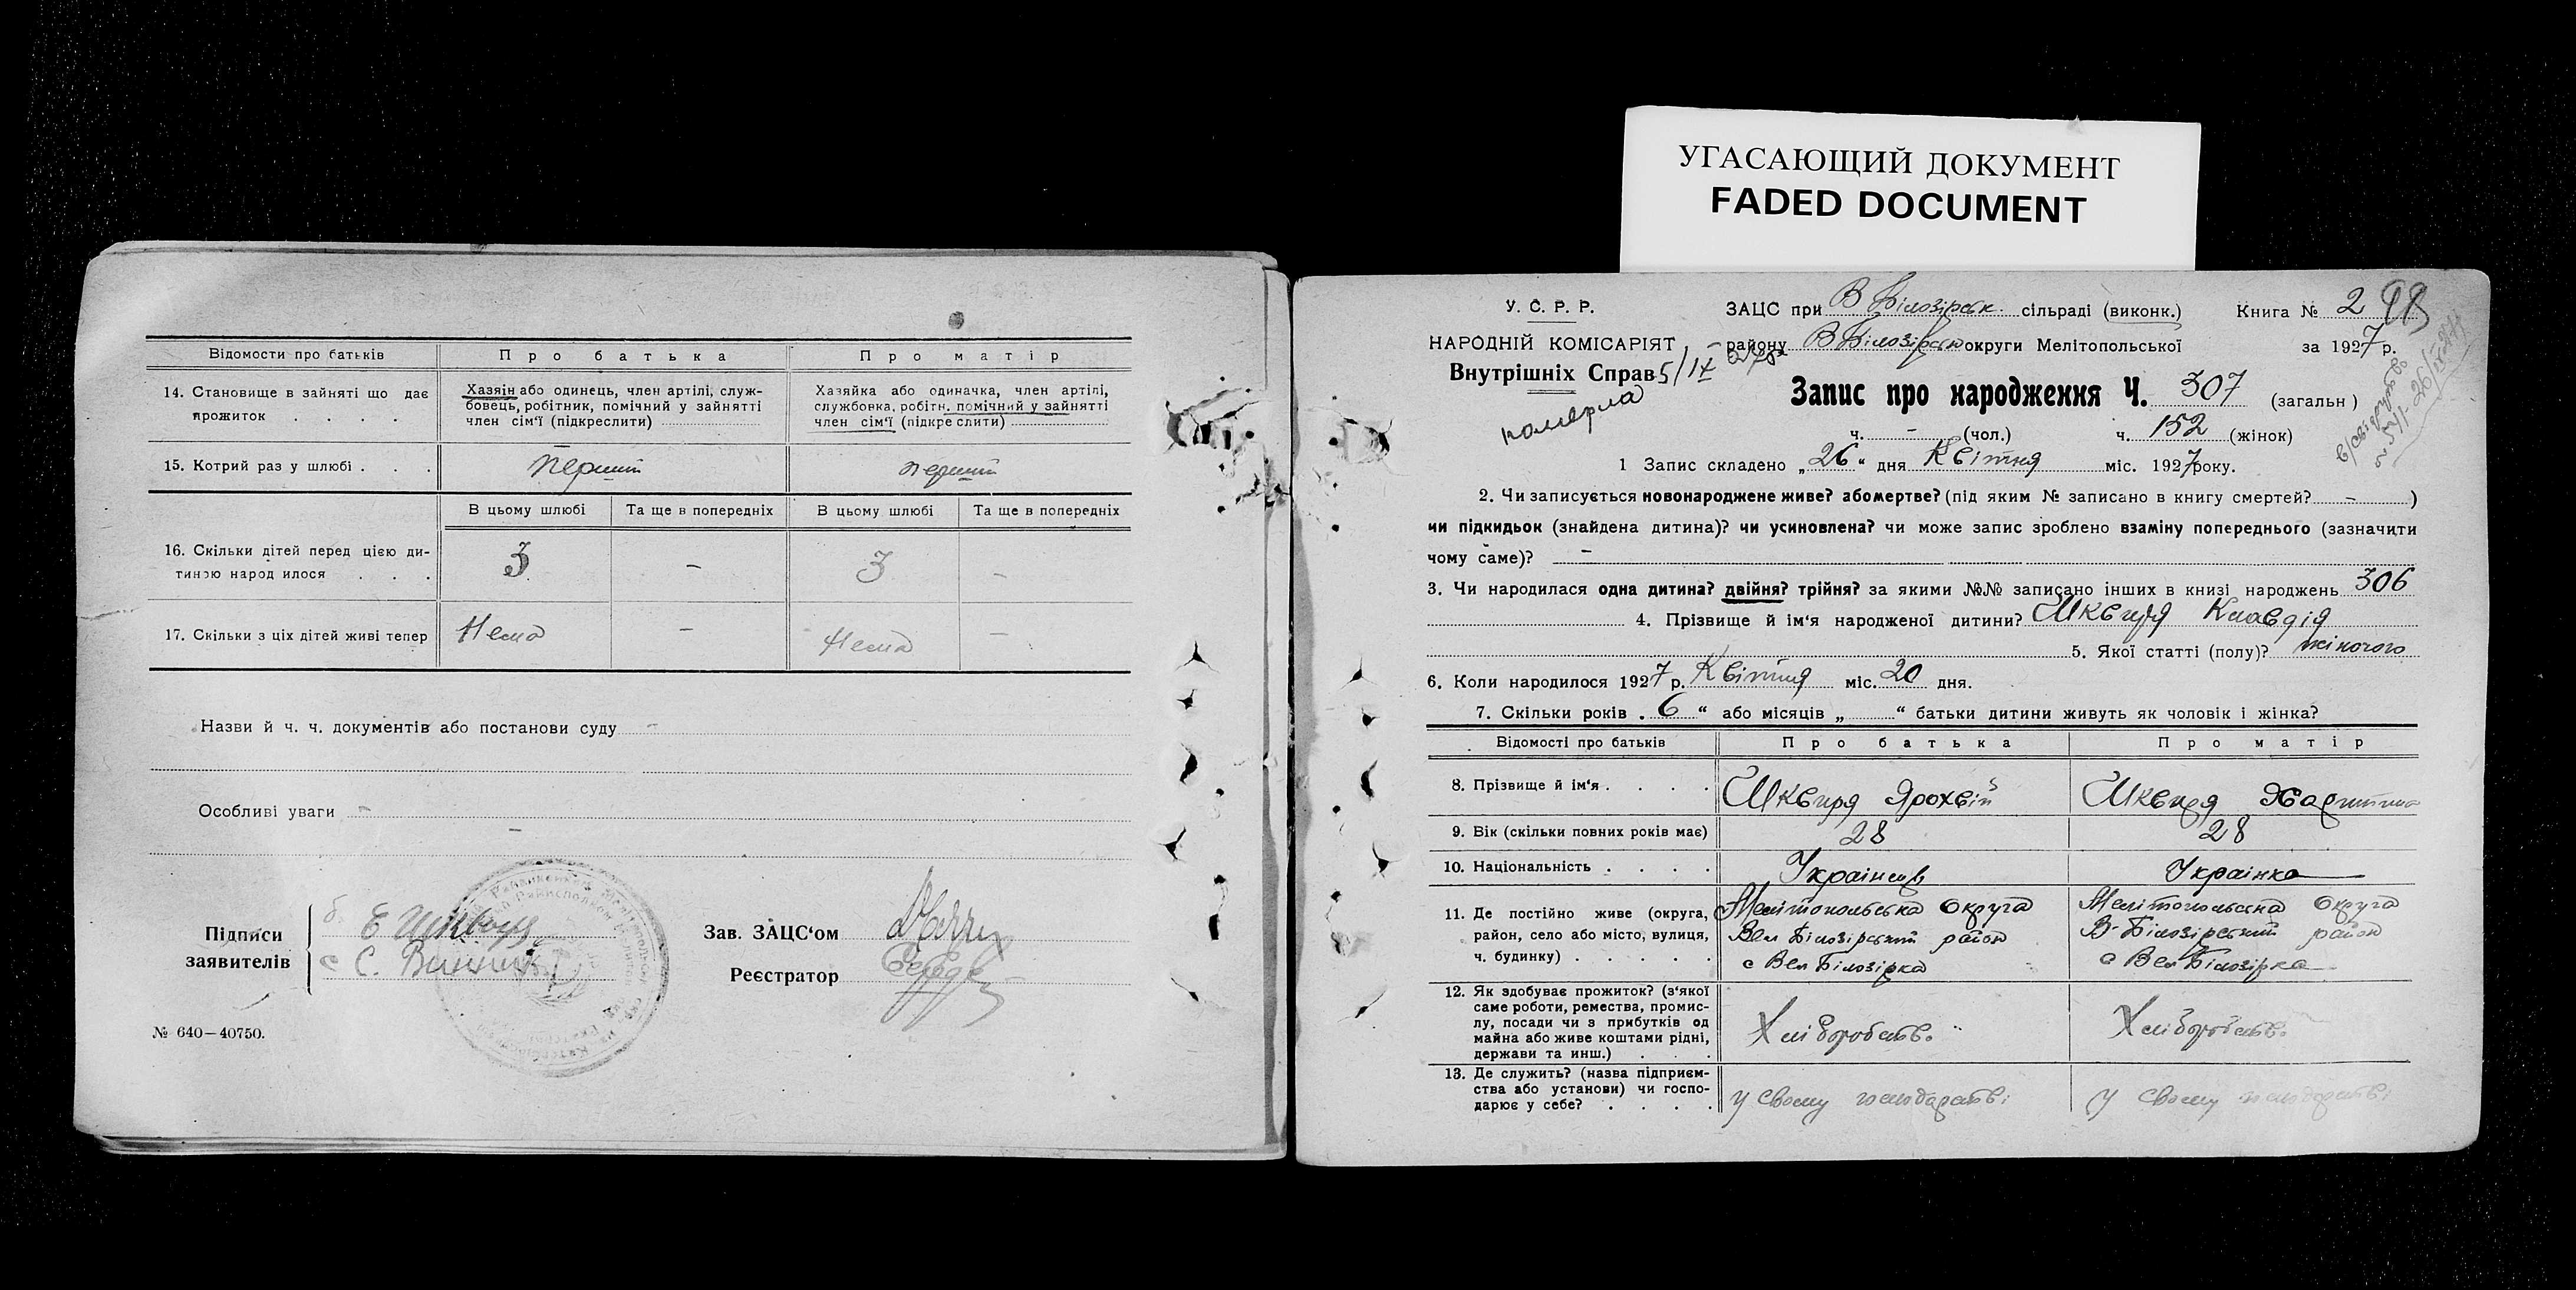 УГАСАЮЩИЙ ДОКУМЕНТ
FADED DOCUMENT
Відомости про батьків Про батька Про матір
14. Становище в зайняті що дає прожиток . . . .
Хазяїн або одинець, член артілі, служ-
бовець, робітник, помічний у зайнятті
член сім'ї (підкреслити)
Хазяйка або одиначка, член артілі,
службовка, робітн. помічний у зайнятті
член сім'ї (підкреслити)
15. Котрий раз у шлюбі . . . перший перший
В цьому шлюбі Та ще в попередніх В цьому шлюбі Та ще в попередніх
16. Скільки дітей перед цією ди-
тиною народилося . . . 3 - 3 -
17. Скільки з ціх дітей живі тепер Нема - Нема -
Назви й ч. ч. документів або постанови суду -
Особливі уваги -
Підписи
заявителів
С. Винник
Зав. ЗАЦС'ом
Реєстратор
№ 640—40750.
У. С. Р. Р.
НАРОДНІЙ КОМІСАРІЯТ
Внутрішніх Справ
5/IX 27р
померла
ЗАЦС при В Білозірськ. сільраді (виконк.) Книга № 2
району В Білозірськ округи Мелітопольської за 1927 р.
Запис про народження Ч. 307 (загальн)
ч. - (чол.) ч. 152 (жінок)
1 Запис складено „26" дня Квітня міс. 1927 року.
2. Чи записується новонароджене живе? або мертве? (під яким № записано в книгу смертей? - )
чи підкидьок (знайдена дитина)? чи усиновлена? чи може запис зроблено взаміну попереднього (зазначити
чому саме)? -
3. Чи народилася одна дитина? двійня? трійня? за якими №№ записано інших в книзі народжень 306
4. Прізвище й ім'я народженої дитини? Шквиря Клавдія
5. Якої статті (полу)? жіночого
6. Коли народилося 1927 р. Квітня міс. 20 дня.
7. Скільки років „6" або місяців „ " батьки дитини живуть як чоловік і жінка?
Відомості про батьків Про батька Про матір
8. Прізвище й ім'я . . . . Шквиря Ярохвій Шквиря Харитина
9. Вік (скільки повних років має) 28 28
10. Національність . . . . Українець Українка
11. Де постійно живе (округа,
район, село або місто, вулиця,
ч. будинку) . . . . .
Мелітопольська Округа
Вел Білозірський район
с Вел Білозірка
Мелітопольська Округа
В-Білозірський район
с Вел Білозірка
12. Як здобуває прожиток? (з'якої
саме роботи, ремества, промис-
лу, посади чи з прибутків од
майна або живе коштами рідні,
держави та инш.) . . .
Хліборобств. Хліборобств.
13. Де служить? (назва підприєм-
ства або установи) чи госпо-
дарює у себе? . . . .
У своему господарстві У своему господарстві